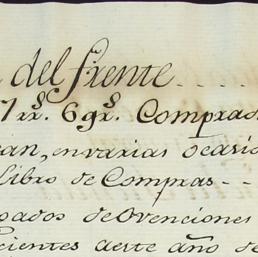 del frente
7 rr.s 6 gr.s Compras
en varias ocasio
Libro de Compras
de Ovenciones
cientes aeste año de